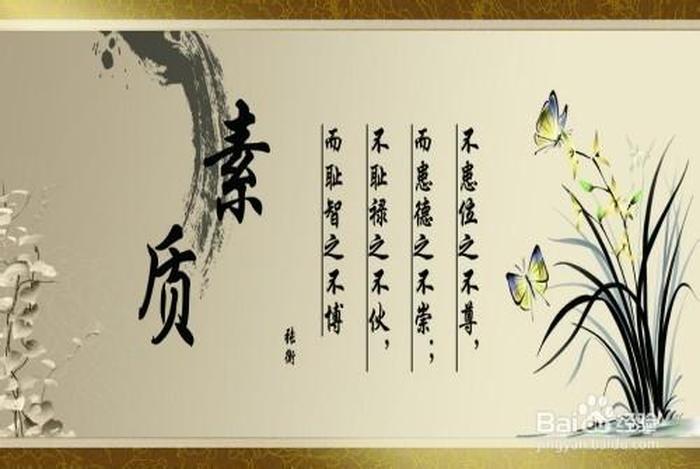 素质
不患位之不尊，
而患德之不崇；
不耻禄之不伙，
而耻智之不博
张衡
Baidu 经验
jingyan.baidu.com